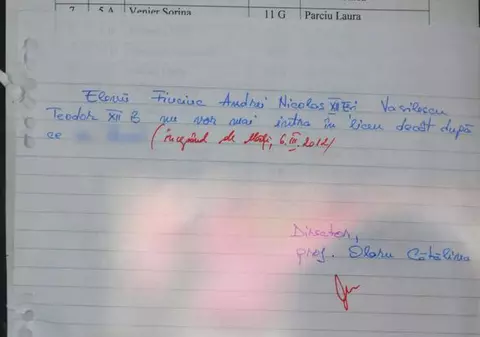 7 5 A Venier Sorina 11 G Parciu Laura
Elevii Andrei Nicolas XII E și Vasilescu
Teodor XII E nu vor mai intra în liceu decât după
ce (începând de Marți, 6.III.2012)
Director,
prof. Olaru Cătălina